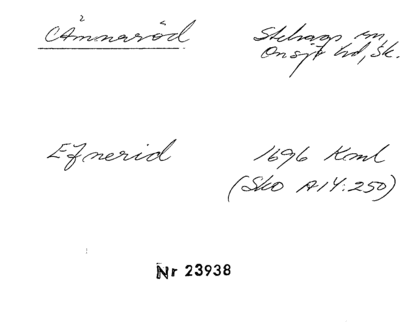 Ämnaröd
Stehags sn,
Onsjö hd, Sk.
Efnerid
1696 Kml
(Sko A14:250)
Nr 23938